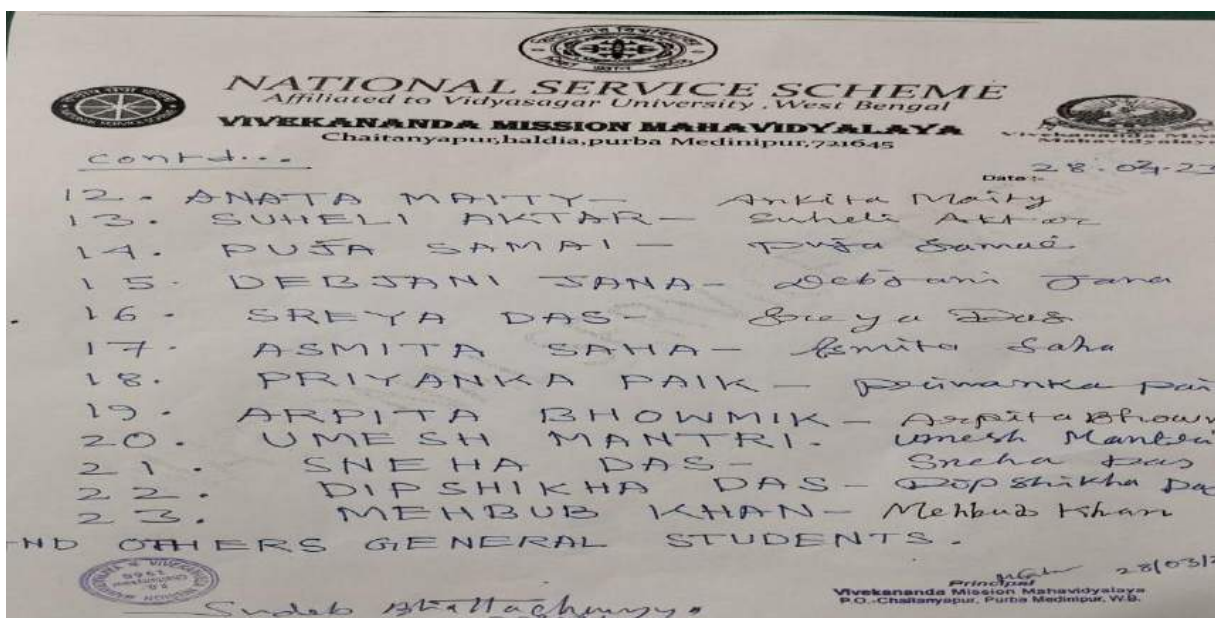 NATIONAL SERVICE SCHEME
Affiliated to Vidyasagar University ,West Bengal
VIVEKANANDA MISSION MAHAVIDYALAYA
Chaitanyapur,haldia,purba Medinipur,721645
Vivekananda Miss
Mahavidyalaya
contd...
Date :-
12. ANATA MAITY- Ankita Maity
13. SUHELI AKTAR- Suheli Aktar
14. PUJA SAMAI- Puja Samai
15. DEBJANI JANA- Debjani Jana
16. SREYA DAS- Sreya Das
17. ASMITA SAHA- Asmita Saha
18. PRIYANKA PAIK- Priyanka pai
19. ARPITA BHOWMIK- Arpita Bhowm
20. UMESH MANTRI. Umesh Mantri
21. SNEHA DAS- Sneha Das
22. DIPSHIKHA DAS- Dipshikha Das
23. MEHBUB KHAN- Mehbub Khan
ND OTHERS GENERAL STUDENTS.
28/03/2
Principal
Vivekananda Mission Mahavidyalaya
P.O.-Chaitanyapur, Purba Medinipur, W.B.
Sudeb Bhattacharyya